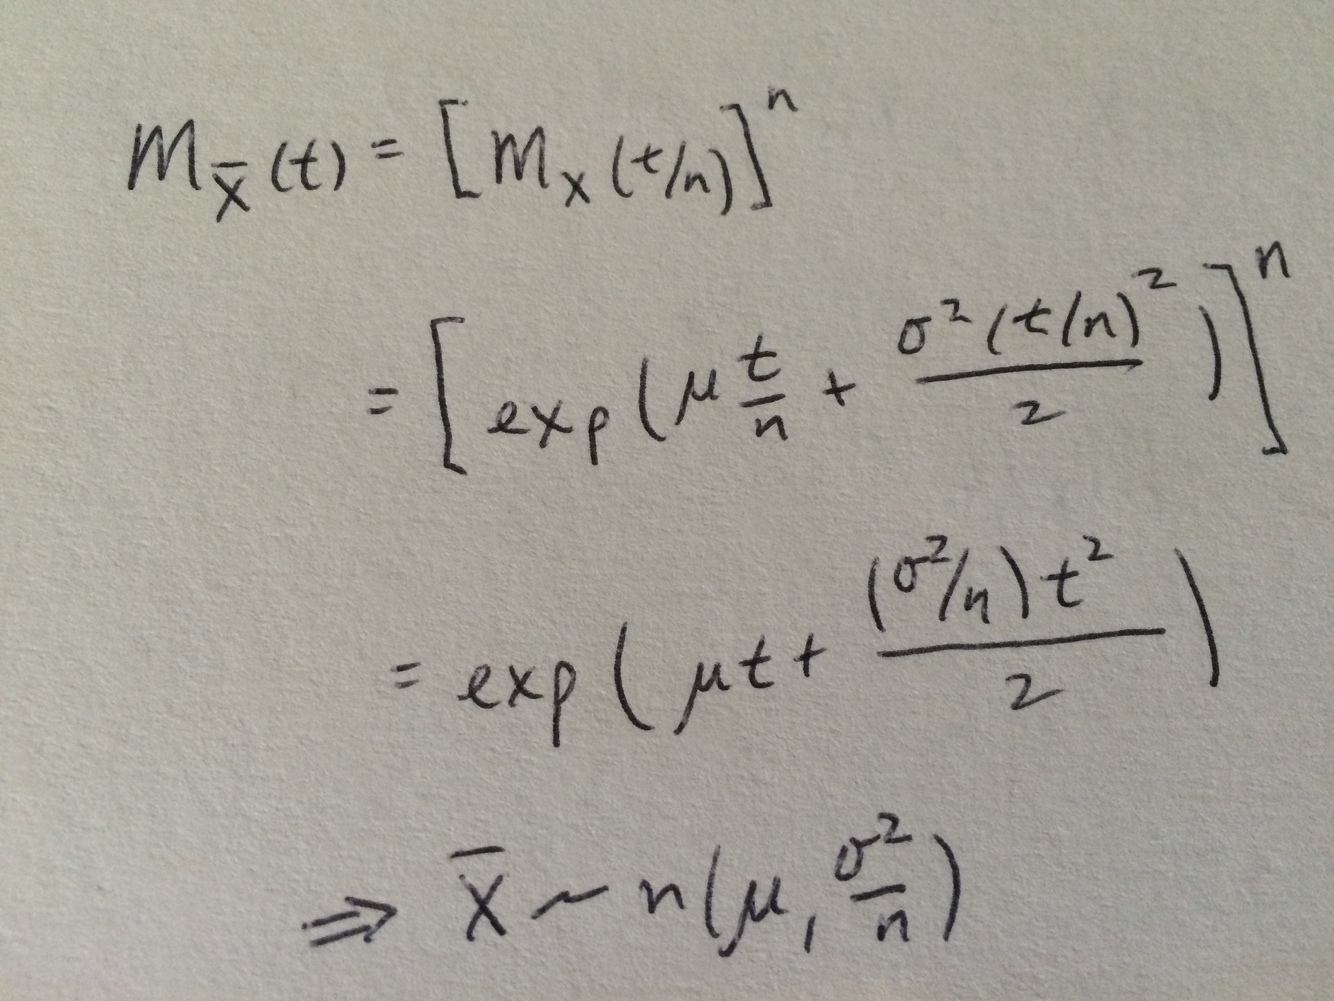 M_X̄(t) = [M_X(t/n)]^n
= [exp(μ t/n + σ²(t/n)²/2)]^n
= exp(μt + (σ²/n)t²/2)
⇒ X̄ ~ n(μ, σ²/n)